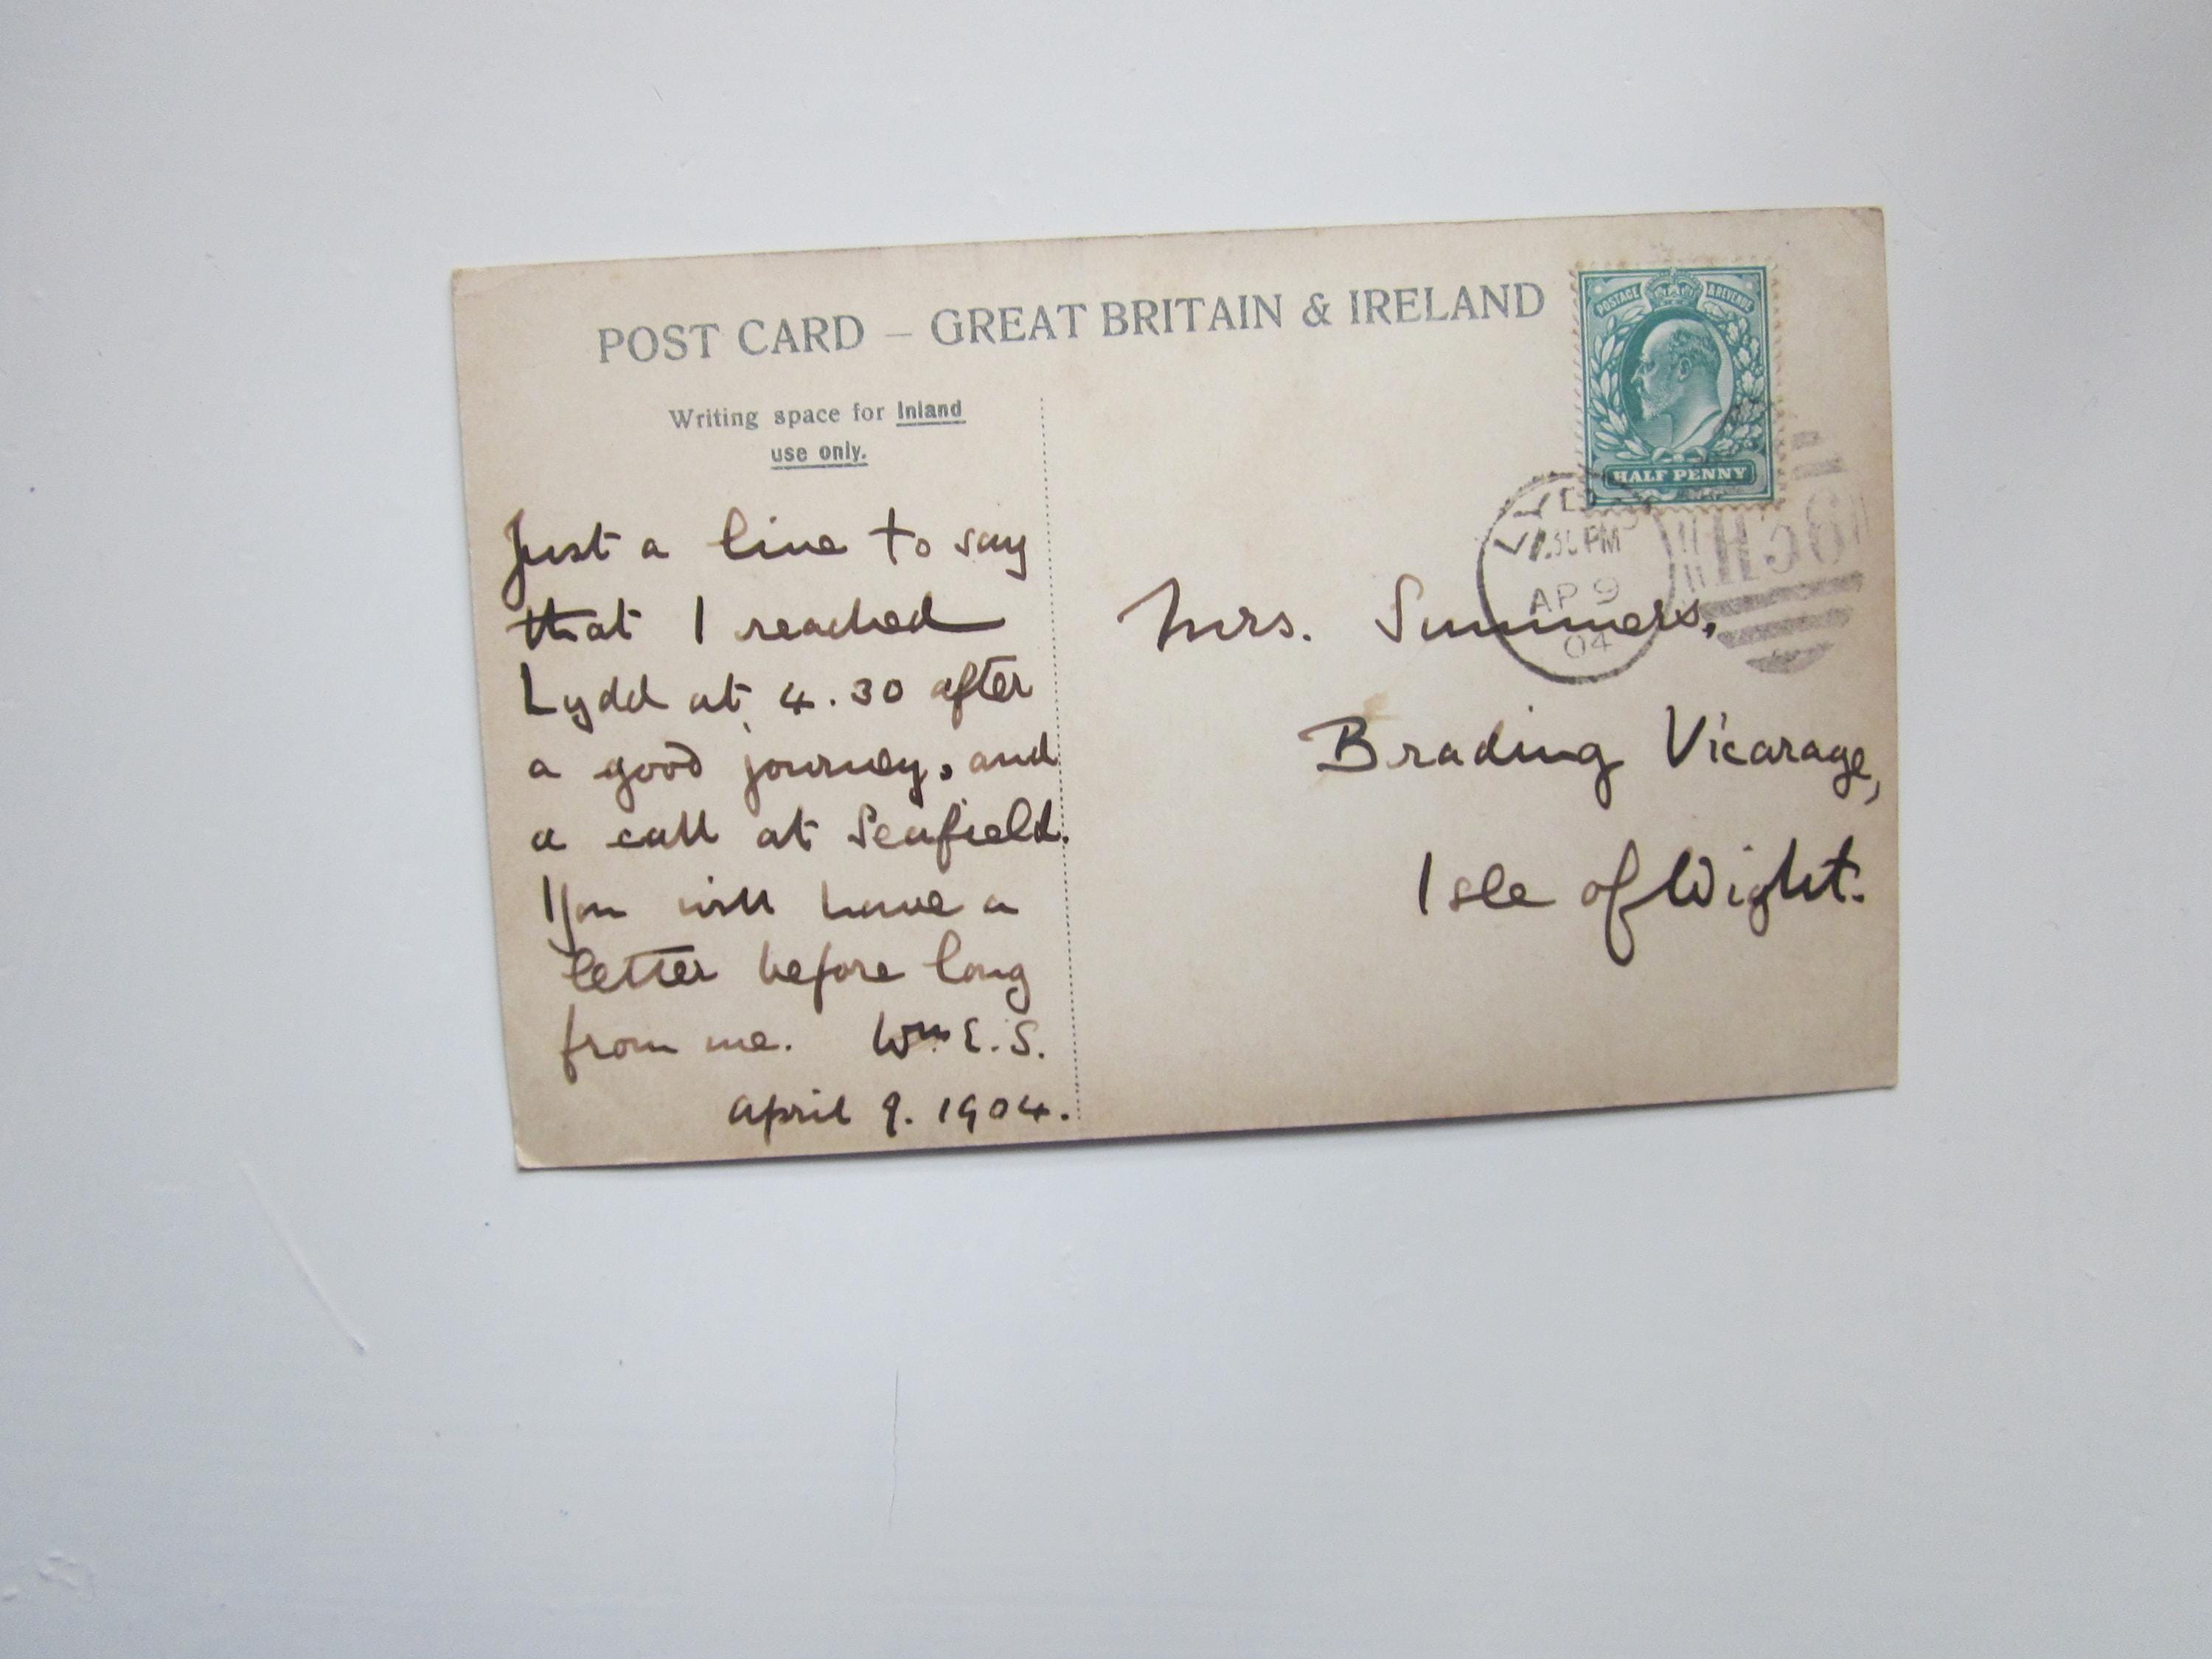 POST CARD – GREAT BRITAIN & IRELAND
Writing space for Inland
use only.
Just a line to say
that I reached
Lydd at 4.30 after
a good journey, and
a call at Seafield.
You will have a
letter before long
from me. Wm E.S.
April 9. 1904.
POSTAGE & REVENUE
HALF PENNY
PM
AP 9
04
H56
Mrs. Summers,
Brading Vicarage,
Isle of Wight.